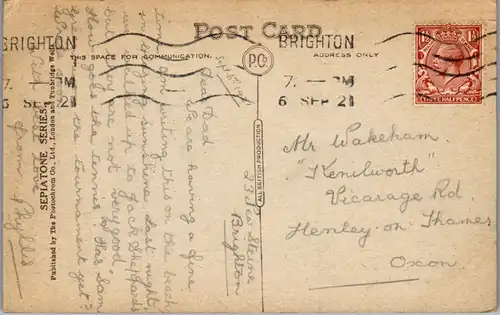 POST CARD
BRIGHTON
7. — PM
6 SEP 21
BRIGHTON
7. — PM
6 SEP 21
THIS SPACE FOR COMMUNICATION.
ADDRESS ONLY
THREE HALFPENCE
ALL BRITISH PRODUCTION
SEPIATONE SERIES.
Published by The Photochrom Co., Ltd., London and Tunbridge Wells.
23 New Steine
Brighton
Dear Dad.
We are having a fine
time am writing this on the beach
in sunshine. Last night
we up to Jack Sheppards
but they are not very good.
How goes the tennis? Has Sam
the tournament yet?
from Phyllis
Mr Wakeham
"Kenilworth"
Vicarage Rd
Henley on Thames
Oxon.